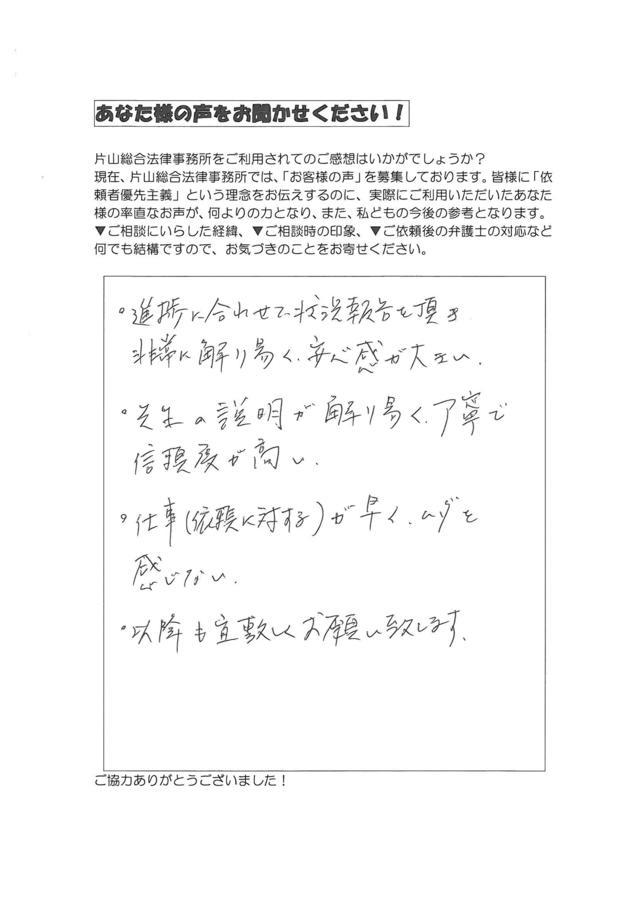 あなた様の声をお聞かせください！
片山総合法律事務所をご利用されてのご感想はいかがでしょうか？
現在、片山総合法律事務所では、「お客様の声」を募集しております。皆様に「依
頼者優先主義」という理念をお伝えするのに、実際にご利用いただいたあなた
様の率直なお声が、何よりの力となり、また、私どもの今後の参考となります。
▼ご相談にいらした経緯、▼ご相談時の印象、▼ご依頼後の弁護士の対応など
何でも結構ですので、お気づきのことをお寄せください。
・進捗に合わせて状況報告を頂き
非常に解り易く、安心感が大きい。
・先生の説明が解り易く、丁寧で
信頼度が高い。
・仕事(依頼に対する)が早く、ムダを
感じない。
・以降も宜敷しくお願い致します。
ご協力ありがとうございました！